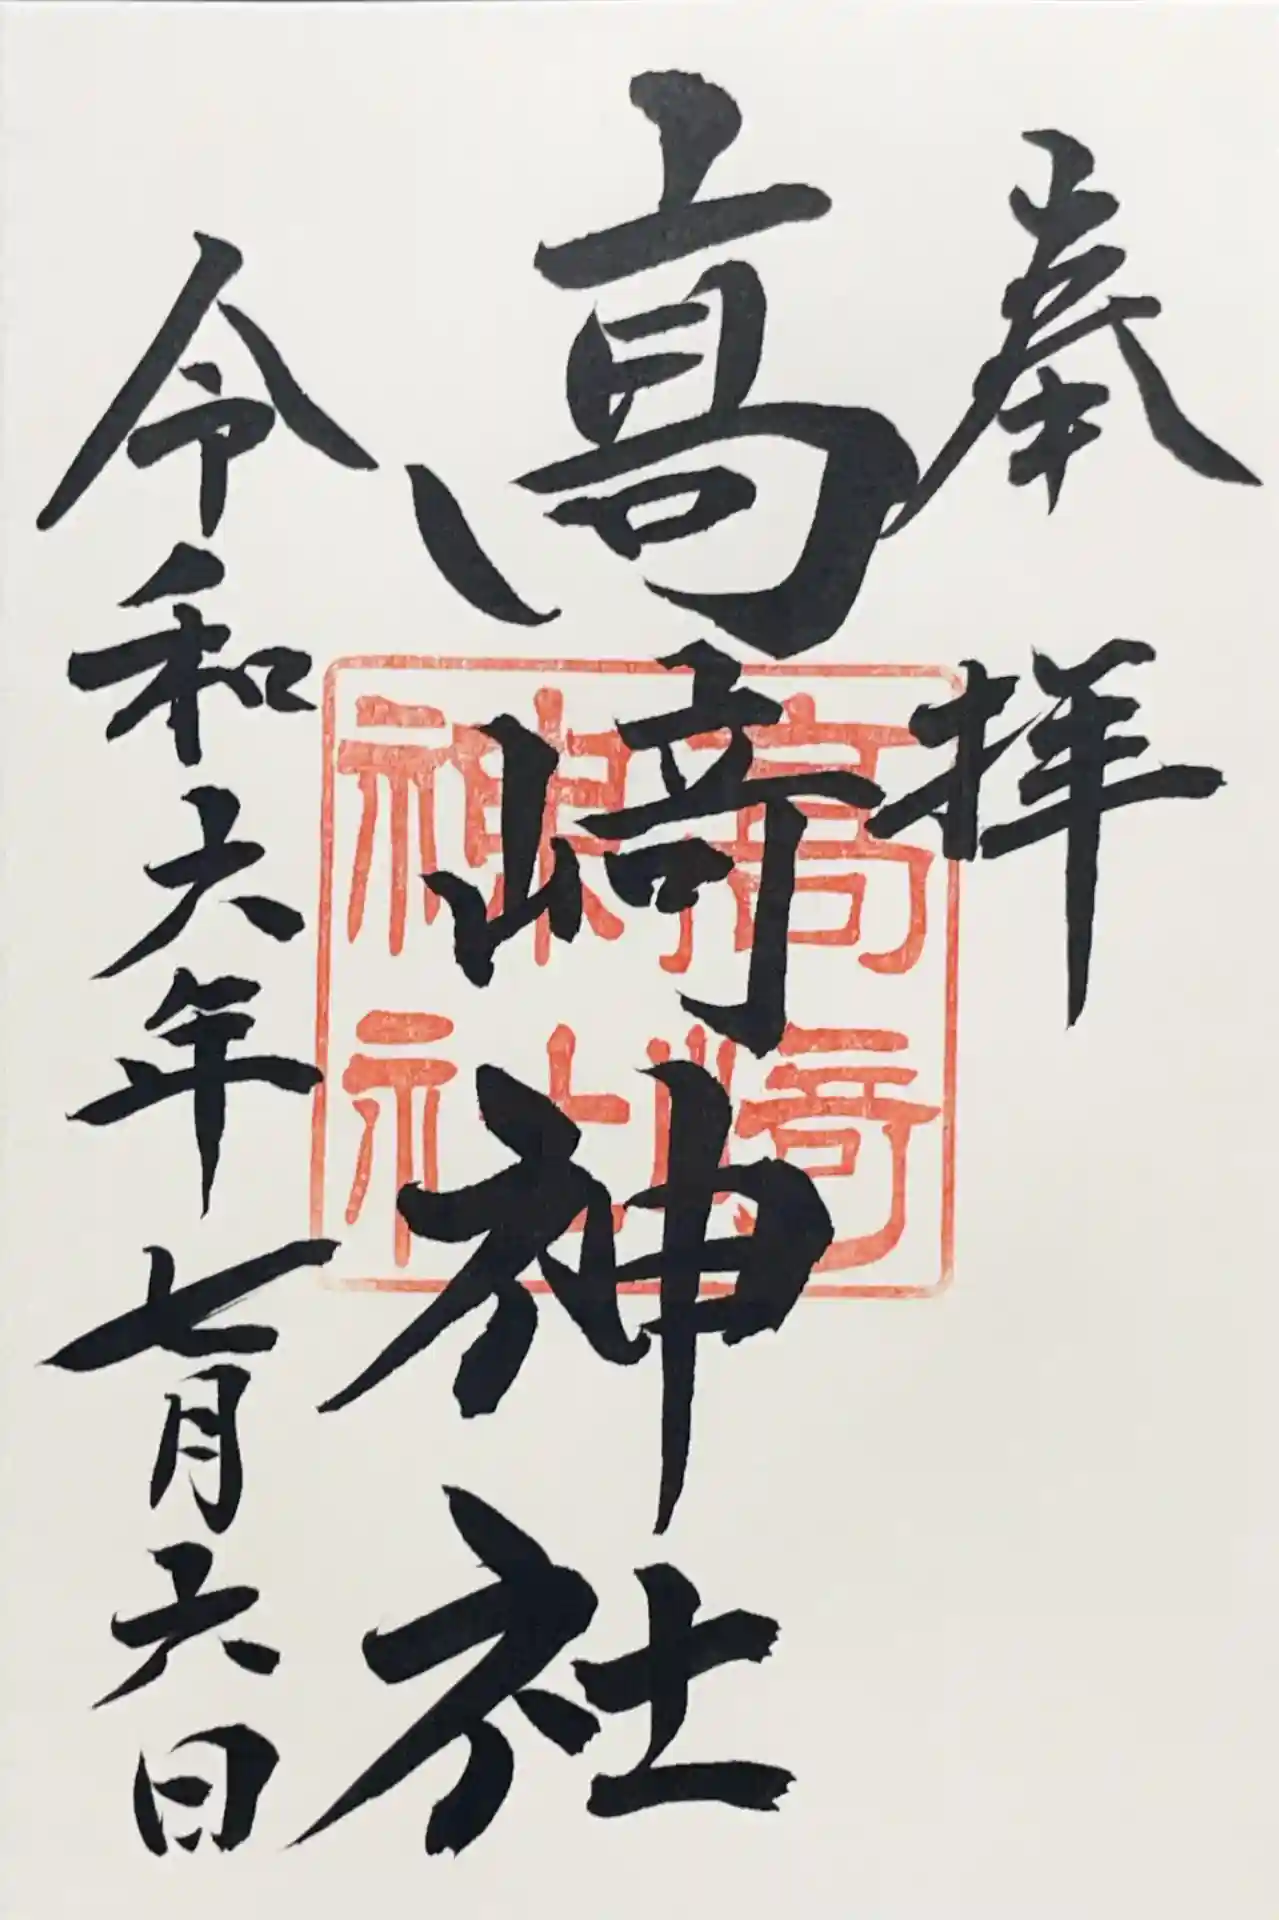 奉拝
高崎神社
令和六年七月六日
高崎
神社